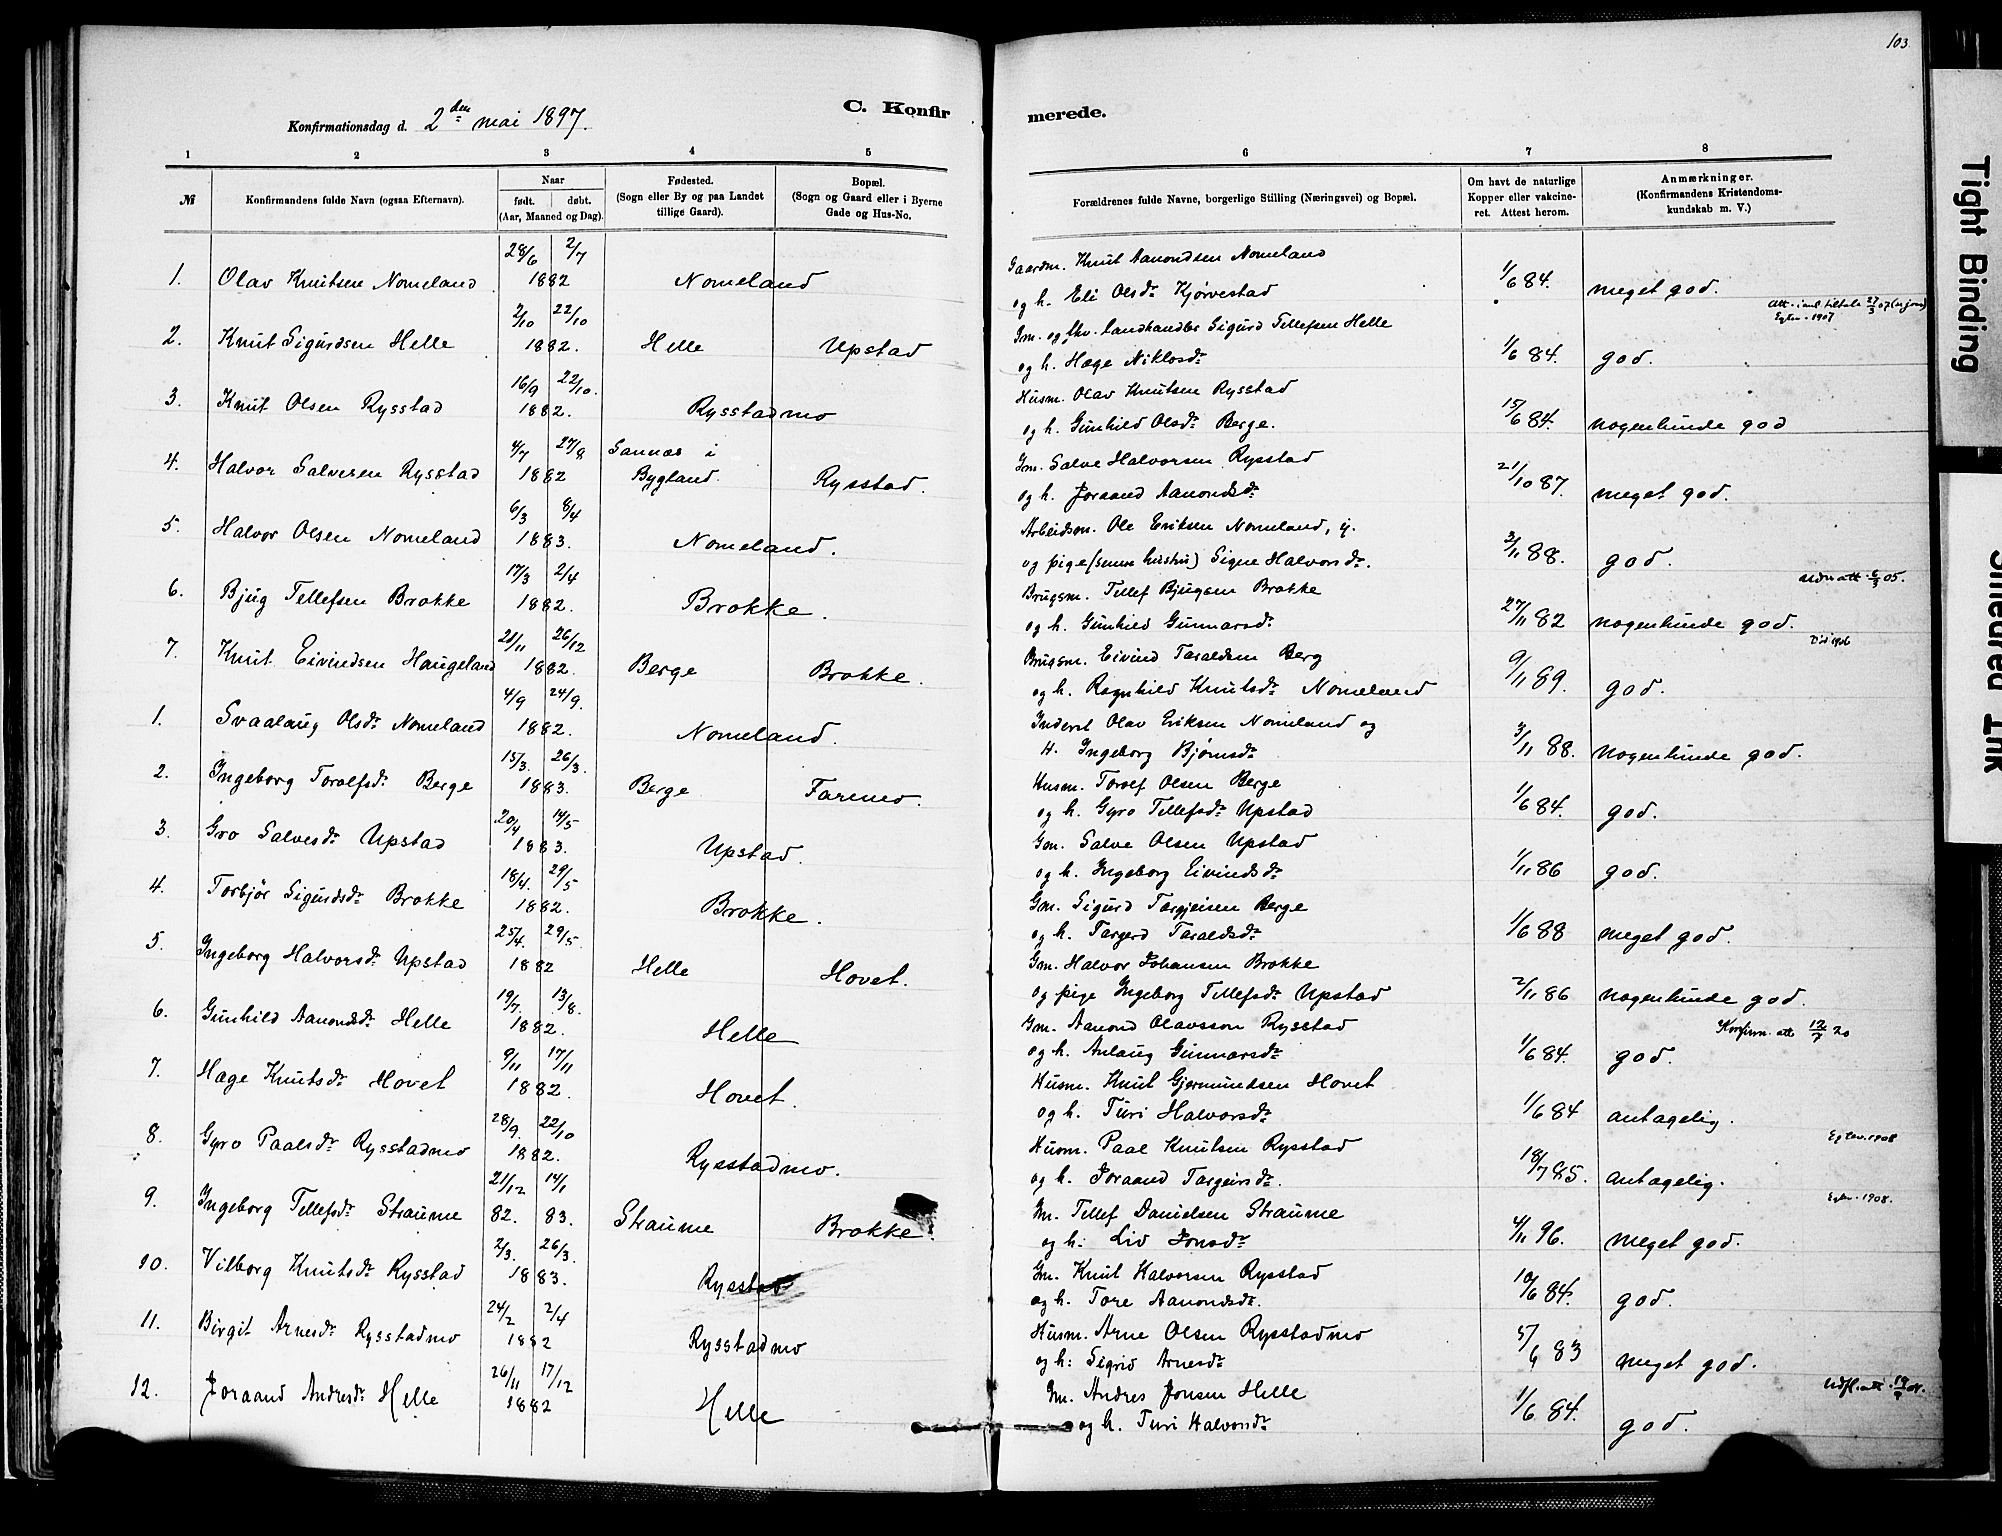 103
C. Konfirmerede.
Konfirmationsdag d. 2den mai 1897.
1 2 3 4 5 6 7 8
№ Konfirmandens fulde Navn (ogsaa Efternavn). Naar født. døbt. (Aar, Maaned og Dag). Fødested. (Sogn eller By og paa Landet tillige Gaard). Bopæl. (Sogn og Gaard eller i Byerne Gade og Hus-No. Forældrenes fulde Navne, borgerlige Stilling (Næringsvei) og Bopæl. Om havt de naturlige Kopper eller vakcineret. Attest herom. Anmærkninger. (Konfirmandens Kristendomskundskab m. V.)
28/6 2/7 Gaardm. Knut Aanondsen Nomeland
1. Olav Knutsen Nomeland 1882 Nomeland og h. Eli Olsdr Kjørvestad 1/6 84. meget god.
2/10 22/10 Gm. og fhv. landhandler Sigurd Tellefsen Helle
2. Knut Sigurdsen Helle 1882. Helle Upstad og h. Hæge Niklosdr 1/6 84. god.
16/9 22/10. Husm. Olav Knutsen Rysstad
3. Knut Olsen Rysstad 1882. Rysstadmo og h. Gunhild Olsdr Berge. 15/6 84. nogenlunde god
4/7 27/8 Sannæs i Gm. Salve Halvorsen Rysstad
4. Halvor Salvesen Rysstad 1882 Bygland. Rysstad. og h. Joraand Aanondsdr 21/10 87. meget god.
6/3 8/4 Arbeidsm. Ole Eriksen Nomeland, ij.
5. Halvor Olsen Nomeland 1883. Nomeland. og pige (senere hustru) Signe Halvorsdr. 3/11 88. god.
17/3 2/4 Brugsm. Tellef Bjugsen Brokke
6. Bjug Tellefsen Brokke 1882. Brokke. og h. Gunhild Gunnarsdr 27/11 82 nogenlunde god.
21/11 26/12 Brugsm. Eivind Taraldsen Berg
7. Knut Eivindsen Haugeland 1882. Berge Brokke. og h. Ragnhild Knutsdr Nomeland 9/11 89. god.
4/9 24/9. Inderst Olav Eriksen Nomeland og
1. Svaalaug Olsdr Nomeland 1882. Nomeland. H. Ingeborg Bjørnsdr 3/11 88. nogenlunde god.
15/3. 26/3. Husm. Torolf Olsen Berge
2. Ingeborg Torolfsdr Berge 1883. Berge Faremo. og h. Gyro Tellefsdr Upstad 1/6 84. god.
20/4 14/5 Gm. Salve Olsen Upstad
3. Gro Salvesdr Upstad 1883. Upstad. og h. Ingeborg Eivindsdr 1/11 86 god.
18/4. 29/5 Gm. Sigurd Targjeisen Berge
4. Torbjør Sigurdsdr Brokke 1882. Brokke. og h. Targerd Taraldsdr 1/6 88 meget god.
25/4. 29/5. Gm. Halvor Johansen Brokke
5. Ingeborg Halvorsdr Upstad 1882 Helle Hovet. og pige Ingeborg Tellefsdr Upstad 2/11 86 nogenlunde god.
19/7. 13/8. Gm. Aanond Olavsson Rysstad Konfirm. att. 12/7 20
6. Gunhild Aanondsdr Helle 1882. Helle og h. Anlaug Gunnarsdr 1/6 84. god.
9/11 17/11 Husm. Knut Gjermundsen Hovet
7. Hæge Knutsdr Hovet 1882. Hovet. og h. Turi Halvorsdr 1/6 84 antagelig.
28/9. 22/10 Husm. Paal Knutsen Rysstad
8. Gyro Paalsdr Rysstadmo 1882. Rysstadmo. og h. Joraand Targeirsdr. 18/7 85. antagelig.
21/12 14/1 Gm. Tellef Danielsen Straume
9. Ingeborg Tellefsdr Straume 82. 83. Straume Brokke. og h. Liv Jonsdr 4/11 96. meget god.
2/3. 26/3. Gm. Knut Halvorsen Rysstad
10. Vilborg Knutsdr Rysstad 1883. Rysstad og h. Tore Aanondsdr. 10/6 84. god.
24/2 2/4 Husm. Arne Olsen Rysstadmo
11. Birgit Arnesdr Rysstadmo 1882 Rysstadmo og h: Sigrid Arnesdr 5/6 83 meget god.
26/11 17/12 Gm. Andres Jonsen Helle
12. Joraand Andresdr Helle 1882 Helle og h. Turi Halvorsdr 1/6 84. god.
Tight Binding
Smeared Ink